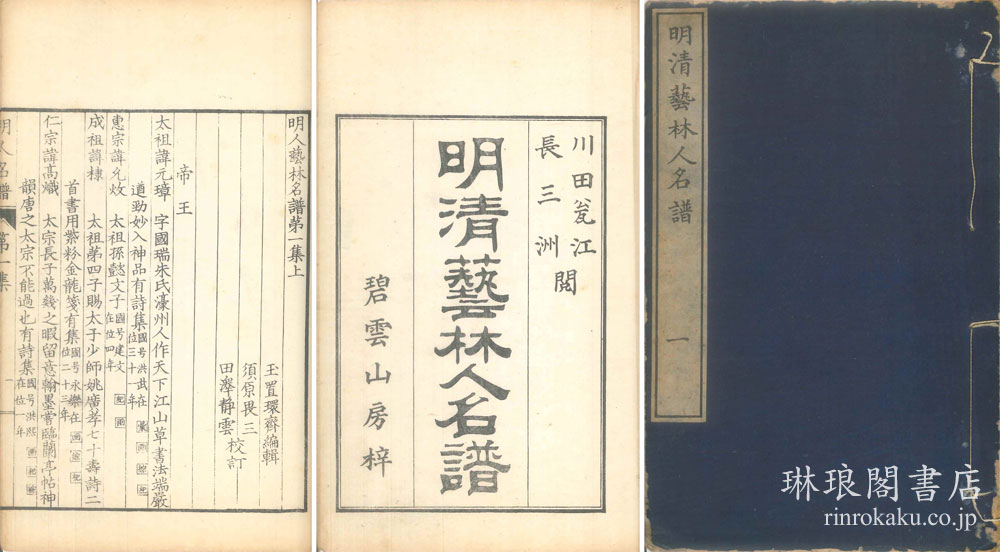 明清藝林人名譜
一
川田瓮江
長三洲 閲
明清藝林人名譜
碧雲山房梓
明人藝林名譜第一集上
玉置環齋編輯
須原畏三
田澤靜雲校訂
帝王
太祖諱元璋 字國瑞朱氏濠州人作天下江山草書法端嚴
遒勁妙入神品有詩集國号洪武在位三十一年
惠宗諱允炆 太祖孫懿文子國号建文在位四年
成祖諱棣 太祖第四子賜太子少師姚廣孝七十壽詩二
首書用紫粉金龍箋有集國号永樂在位二十三年
仁宗諱高熾 太宗長子萬幾之暇留意翰墨嘗臨蘭亭帖神
韻唐之太宗不能過也有詩集國号洪熙在位一年
明人名譜 第一集 一
琳琅閣書店
rinrokaku.co.jp